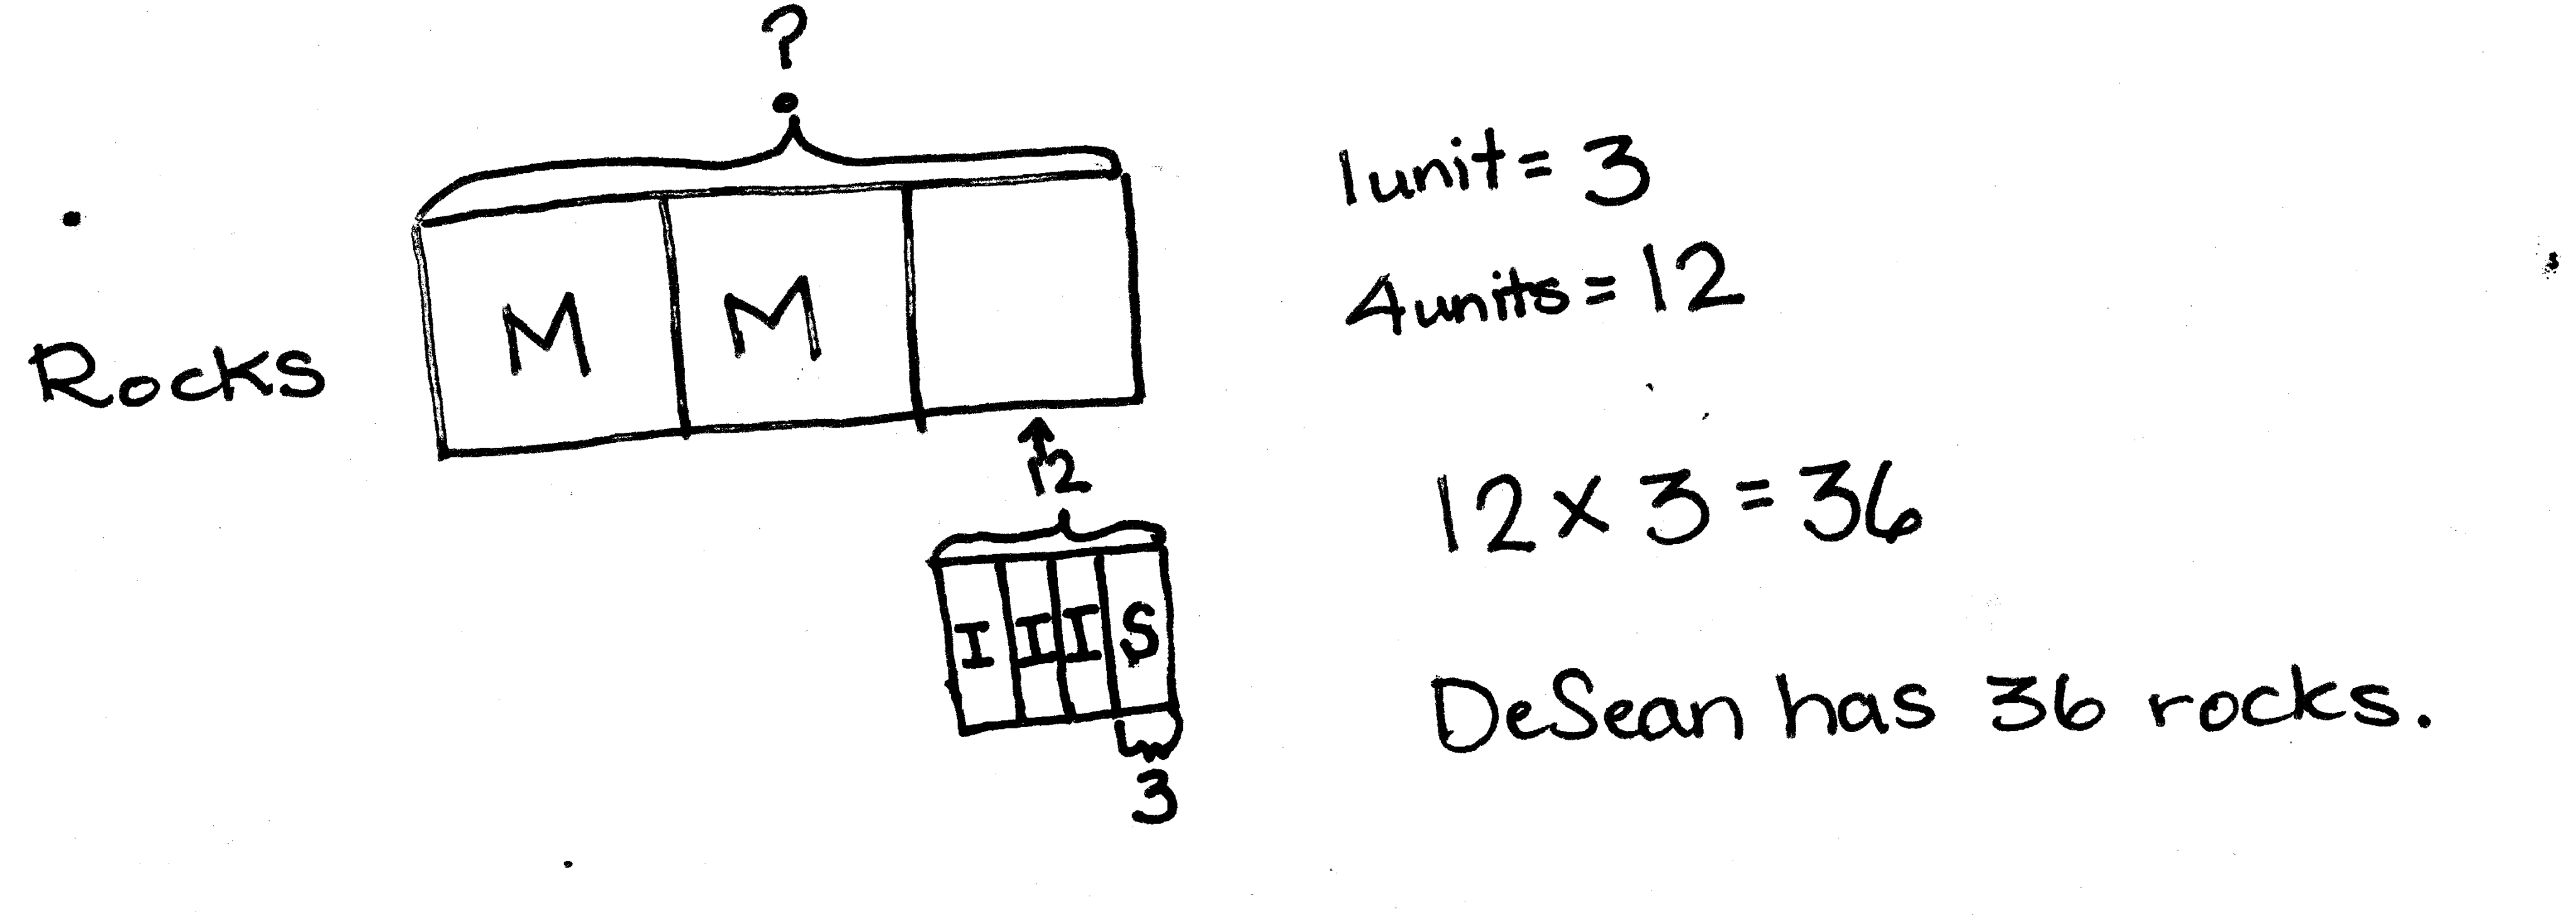 ?
Rocks
M M
12
I I I S
3
1 unit = 3
4 units = 12
12 x 3 = 36
DeSean has 36 rocks.